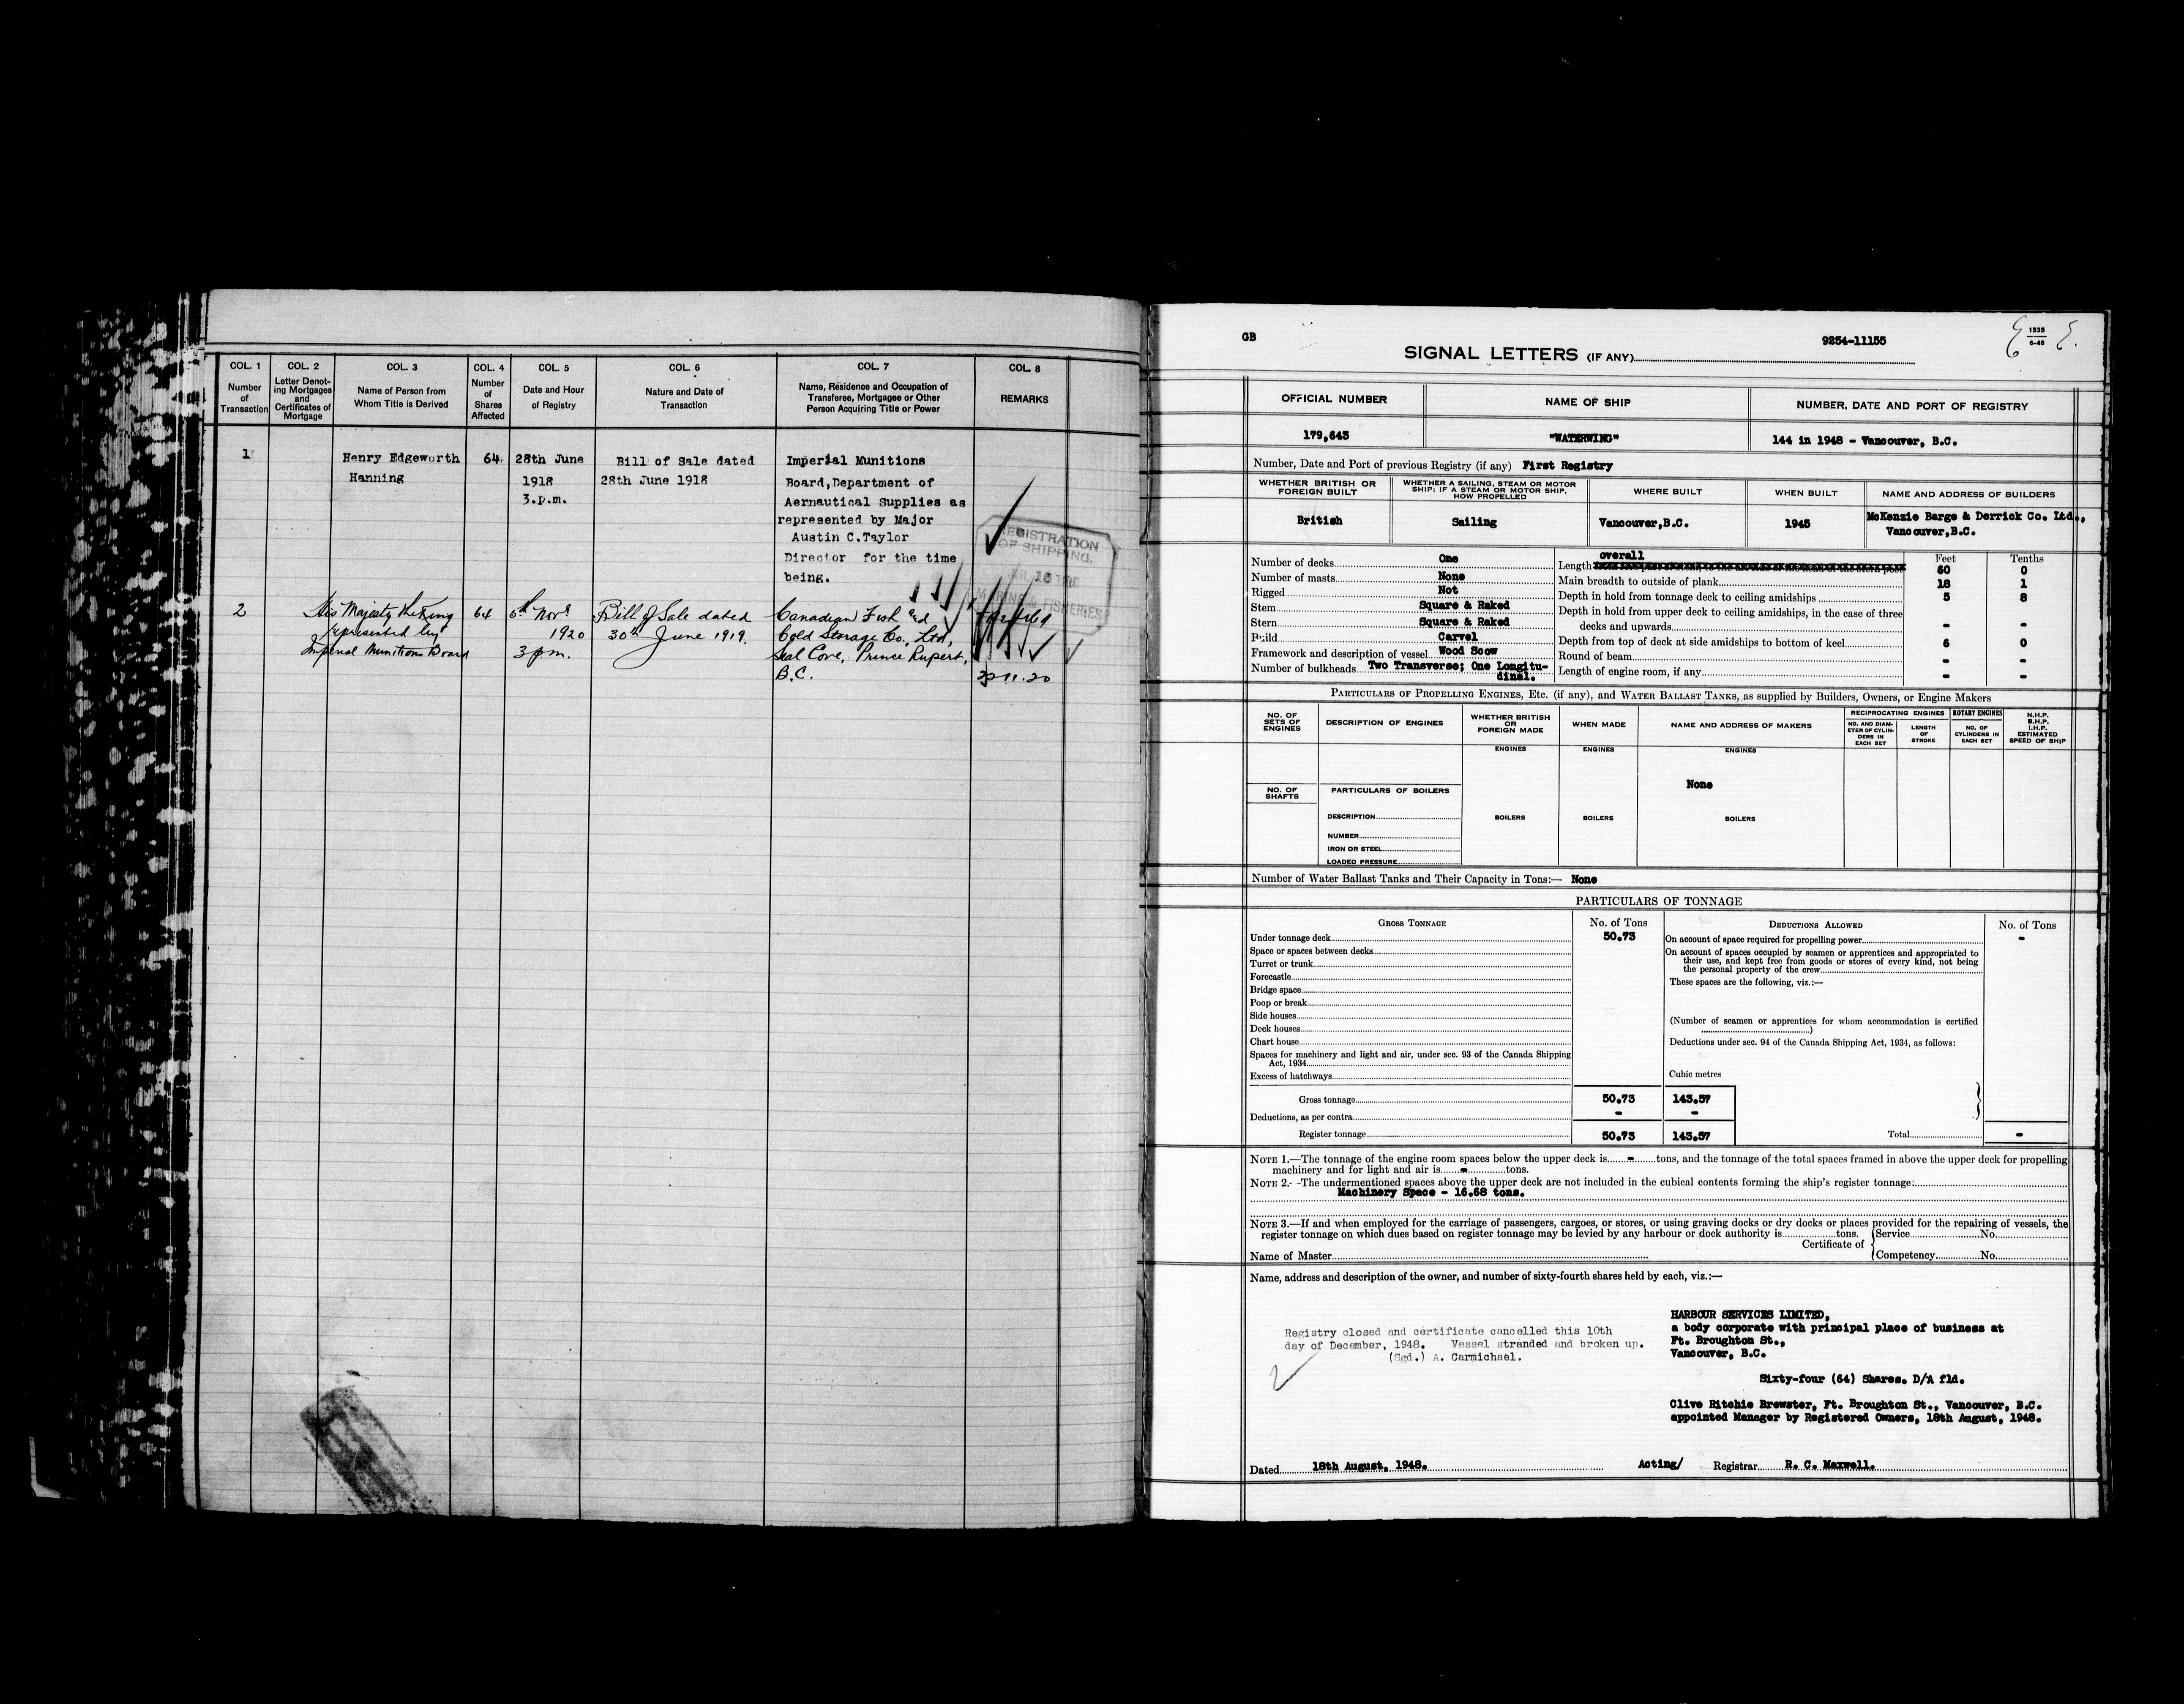 COL. 1 COL. 2 COL. 3 COL. 4 COL. 5 COL. 6 COL. 7 COL. 8
Number of Transaction
Letter Denot-ing Mortgages and Certificates of Mortgage
Name of Person from Whom Title is Derived
Number of Shares Affected
Date and Hour of Registry
Nature and Date of Transaction
Name, Residence and Occupation of Transferee, Mortgagee or Other Person Acquiring Title or Power
REMARKS
1 Henry Edgeworth 64 28th June Bill of Sale dated Imperial Munitions
Hanning 1918 28th June 1918 Board,Department of
3.p.m. Aernautical Supplies as
represented by Major
Austin C.Taylor
Director for the time
being.
REGISTRATION
OF SHIPPING.
MARINE & FISHERIES
2 His Majesty the King 64 5th Novr Bill of Sale dated Canadian Fish and
represented by 1920 30th June 1919. Cold Storage Co., Ltd,
Imperial Munitions Board 3 pm. Seal Cove, Prince Rupert,
B.C. 11.20
GB
9254-11155
1535
6-48
SIGNAL LETTERS (IF ANY)
OFFICIAL NUMBER NAME OF SHIP NUMBER, DATE AND PORT OF REGISTRY
179,643 "WATERWING" 144 in 1948 - Vancouver, B.C.
Number, Date and Port of previous Registry (if any) First Registry
WHETHER BRITISH OR FOREIGN BUILT
WHETHER A SAILING, STEAM OR MOTOR SHIP; IF A STEAM OR MOTOR SHIP, HOW PROPELLED
WHERE BUILT
WHEN BUILT
NAME AND ADDRESS OF BUILDERS
British Sailing Vancouver,B.C. 1945 McKenzie Barge & Derrick Co. Ltd.,
Vancouver,B.C.
Feet Tenths
Number of decks One
Number of masts None
Rigged Not
Stem Square & Raked
Stern Square & Raked
Build Carvel
Framework and description of vessel Wood Scow
Number of bulkheads Two Transverse; One Longitu-
dinal.
overall
Length 60 0
Main breadth to outside of plank 18 1
Depth in hold from tonnage deck to ceiling amidships 5 8
Depth in hold from upper deck to ceiling amidships, in the case of three
decks and upwards - -
Depth from top of deck at side amidships to bottom of keel 6 0
Round of beam - -
Length of engine room, if any - -
PARTICULARS OF PROPELLING ENGINES, ETC. (if any), and WATER BALLAST TANKS, as supplied by Builders, Owners, or Engine Makers
NO. OF SETS OF ENGINES
DESCRIPTION OF ENGINES
WHETHER BRITISH OR FOREIGN MADE
WHEN MADE
NAME AND ADDRESS OF MAKERS
RECIPROCATING ENGINES
NO. AND DIAM-ETER OF CYLIN-DERS IN EACH SET
LENGTH OF STROKE
ROTARY ENGINES
NO. OF CYLINDERS IN EACH SET
N.H.P. B.H.P. I.H.P. ESTIMATED SPEED OF SHIP
ENGINES ENGINES ENGINES
None
NO. OF SHAFTS
PARTICULARS OF BOILERS
DESCRIPTION BOILERS BOILERS BOILERS
NUMBER
IRON OR STEEL
LOADED PRESSURE
Number of Water Ballast Tanks and Their Capacity in Tons:— None
PARTICULARS OF TONNAGE
GROSS TONNAGE No. of Tons
Under tonnage deck 50.73
Space or spaces between decks
Turret or trunk
Forecastle
Bridge space
Poop or break
Side houses
Deck houses
Chart house
Spaces for machinery and light and air, under sec. 93 of the Canada Shipping
Act, 1934
Excess of hatchways
Cubic metres
Gross tonnage 50.73 143.57
Deductions, as per contra - -
Register tonnage 50.73 143.57
DEDUCTIONS ALLOWED No. of Tons
On account of space required for propelling power -
On account of spaces occupied by seamen or apprentices and appropriated to
their use, and kept free from goods or stores of every kind, not being
the personal property of the crew
These spaces are the following, viz.:—
(Number of seamen or apprentices for whom accommodation is certified
)
Deductions under sec. 94 of the Canada Shipping Act, 1934, as follows:
Total -
NOTE 1.—The tonnage of the engine room spaces below the upper deck is - tons, and the tonnage of the total spaces framed in above the upper deck for propelling
machinery and for light and air is - tons.
NOTE 2.- -The undermentioned spaces above the upper deck are not included in the cubical contents forming the ship's register tonnage:
Machinery Space - 16.68 tons.
NOTE 3.—If and when employed for the carriage of passengers, cargoes, or stores, or using graving docks or dry docks or places provided for the repairing of vessels, the
register tonnage on which dues based on register tonnage may be levied by any harbour or dock authority is tons.
Name of Master Certificate of Service No.
Competency No.
Name, address and description of the owner, and number of sixty-fourth shares held by each, viz.:—
Registry closed and certificate cancelled this 10th
day of December, 1948. Vessel stranded and broken up.
(Sgd.) A. Carmichael.
HARBOUR SERVICES LIMITED,
a body corporate with principal place of business at
Ft. Broughton St.,
Vancouver, B.C.
Sixty-four (64) Shares. D/A fld.
Clive Ritchie Brewster, Ft. Broughton St., Vancouver, B.C.
appointed Manager by Registered Owners, 18th August, 1948.
Dated 18th August, 1948. Acting/ Registrar R. C. Maxwell.